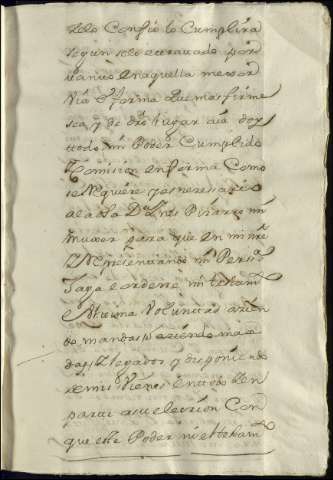 Zelo Confio lo Cumplira
segun selo encargado por
tanto en aquella mexor
via e forma que mas firme
sea, y de dro lugar aia doy
ttodo mi Poder Cumplido
Comision en forma Como
se Requiere y es nesesario
a la dha Da Ines Pizarro mi
muxer para que en mi nre
y Representando mi Persa
haga e ordene mi testamto
e Ultima Voluntad asien
do mandas
das, y Legados y disponiendo
de mis Vienes en ttodo o en
parte a su eleccion Con
que este Poder ni el testamto